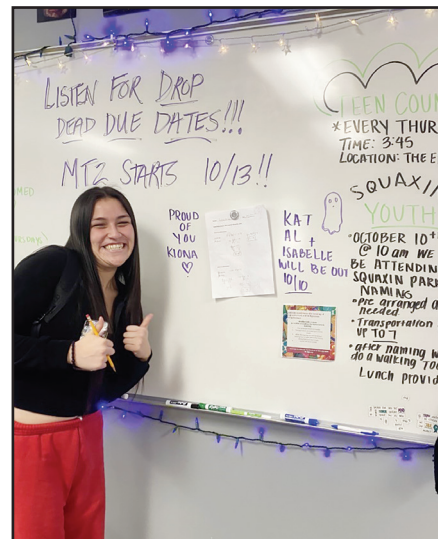 LISTEN FOR DROP
DEAD DUE DATES!!!
MT2 STARTS 10/13!!
PROUD
OF
YOU
KIONA
KAT
AL +
ISABELLE
WILL BE OUT
10/10
TEEN COUN
*EVERY THUR
TIME: 3:45
LOCATION: THE E
SQUAXI
YOUTH
• OCTOBER 10TH
@ 10 am WE
BE ATTENDING
SQUAXIN PARK
NAMING
• Pre arranged a
needed
• Transportation
UP TO 7
• after naming w
do a walking TO
Lunch provid